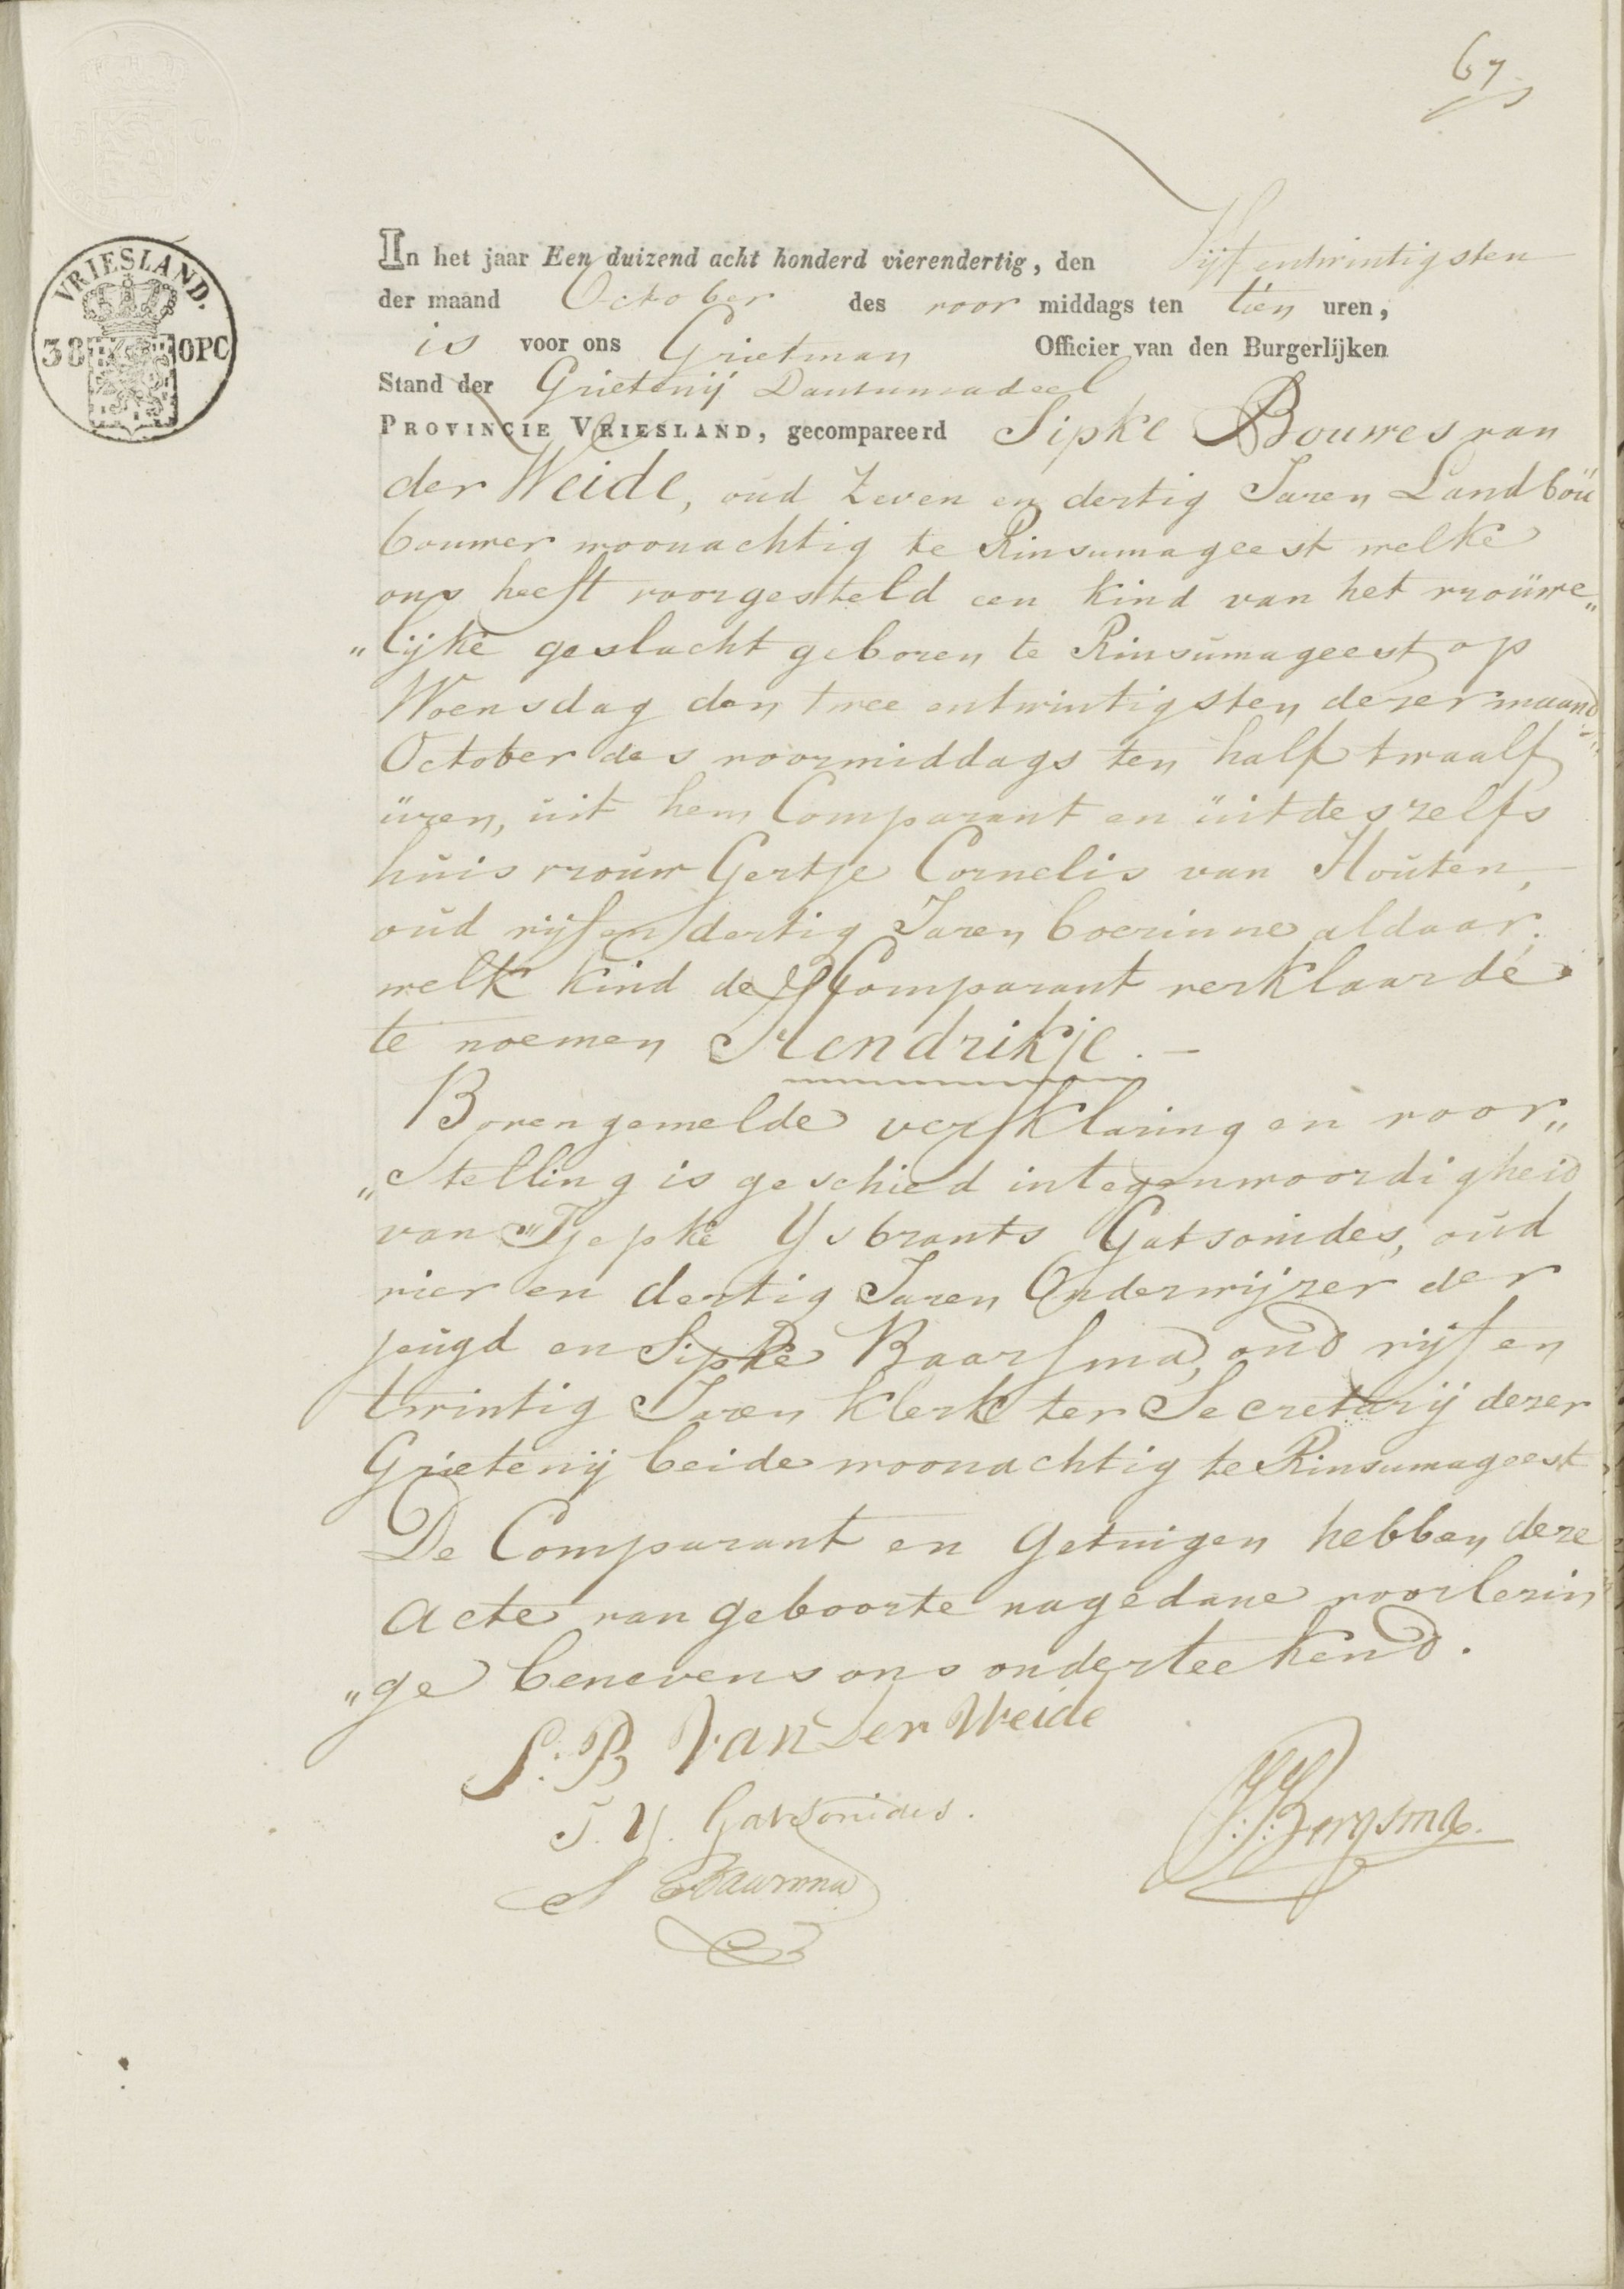 67
VRIESLAND.
38 OPC
In het jaar Een duizend acht honderd vierendertig, den Vijfentwintigsten
der maand October des voor middags ten tien uren,
is voor ons Grietman Officier van den Burgerlijken
Stand der Grietenij Dantumadeel
PROVINCIE VRIESLAND, gecompareerd Sipke Bouwes van
der Weide, oud Zeven en dertig Jaren Landbou
bouwer woonachtig te Rinsumageest welke
ons heeft voorgesteld een kind van het vrouwe„
„lijke geslacht geboren te Rinsumageest op
Woensdag den twee entwintigsten dezer maand
October des voormiddags ten half twaalf
uren, uit hem Comparant en uit deszelfs
huisvrouw Gertje Cornelis van Houten,
oud vijf en dertig Jaren boerinne aldaar;
welk kind de Comparant verklaarde
te noemen Hendrikje. —
Bovengemelde verklaring en voor„
„stelling is geschied in tegenwoordigheid
van Tjepke Ysbrants Gatsonides, oud
vier en dertig Jaren Onderwijzer der
jeugd en Sipke Baarsma, oud vijf en
twintig Jaren Klerk ter Secretarij dezer
Grietenij beide woonachtig te Rinsumageest
De Comparant en Getuigen hebben deze
Acte van geboorte nagedane voorlezin
„ge benevens ons onderteekend.
S: B Van der Weide
T. Y. Gatsonides.
S Baarsma
Bergsma.